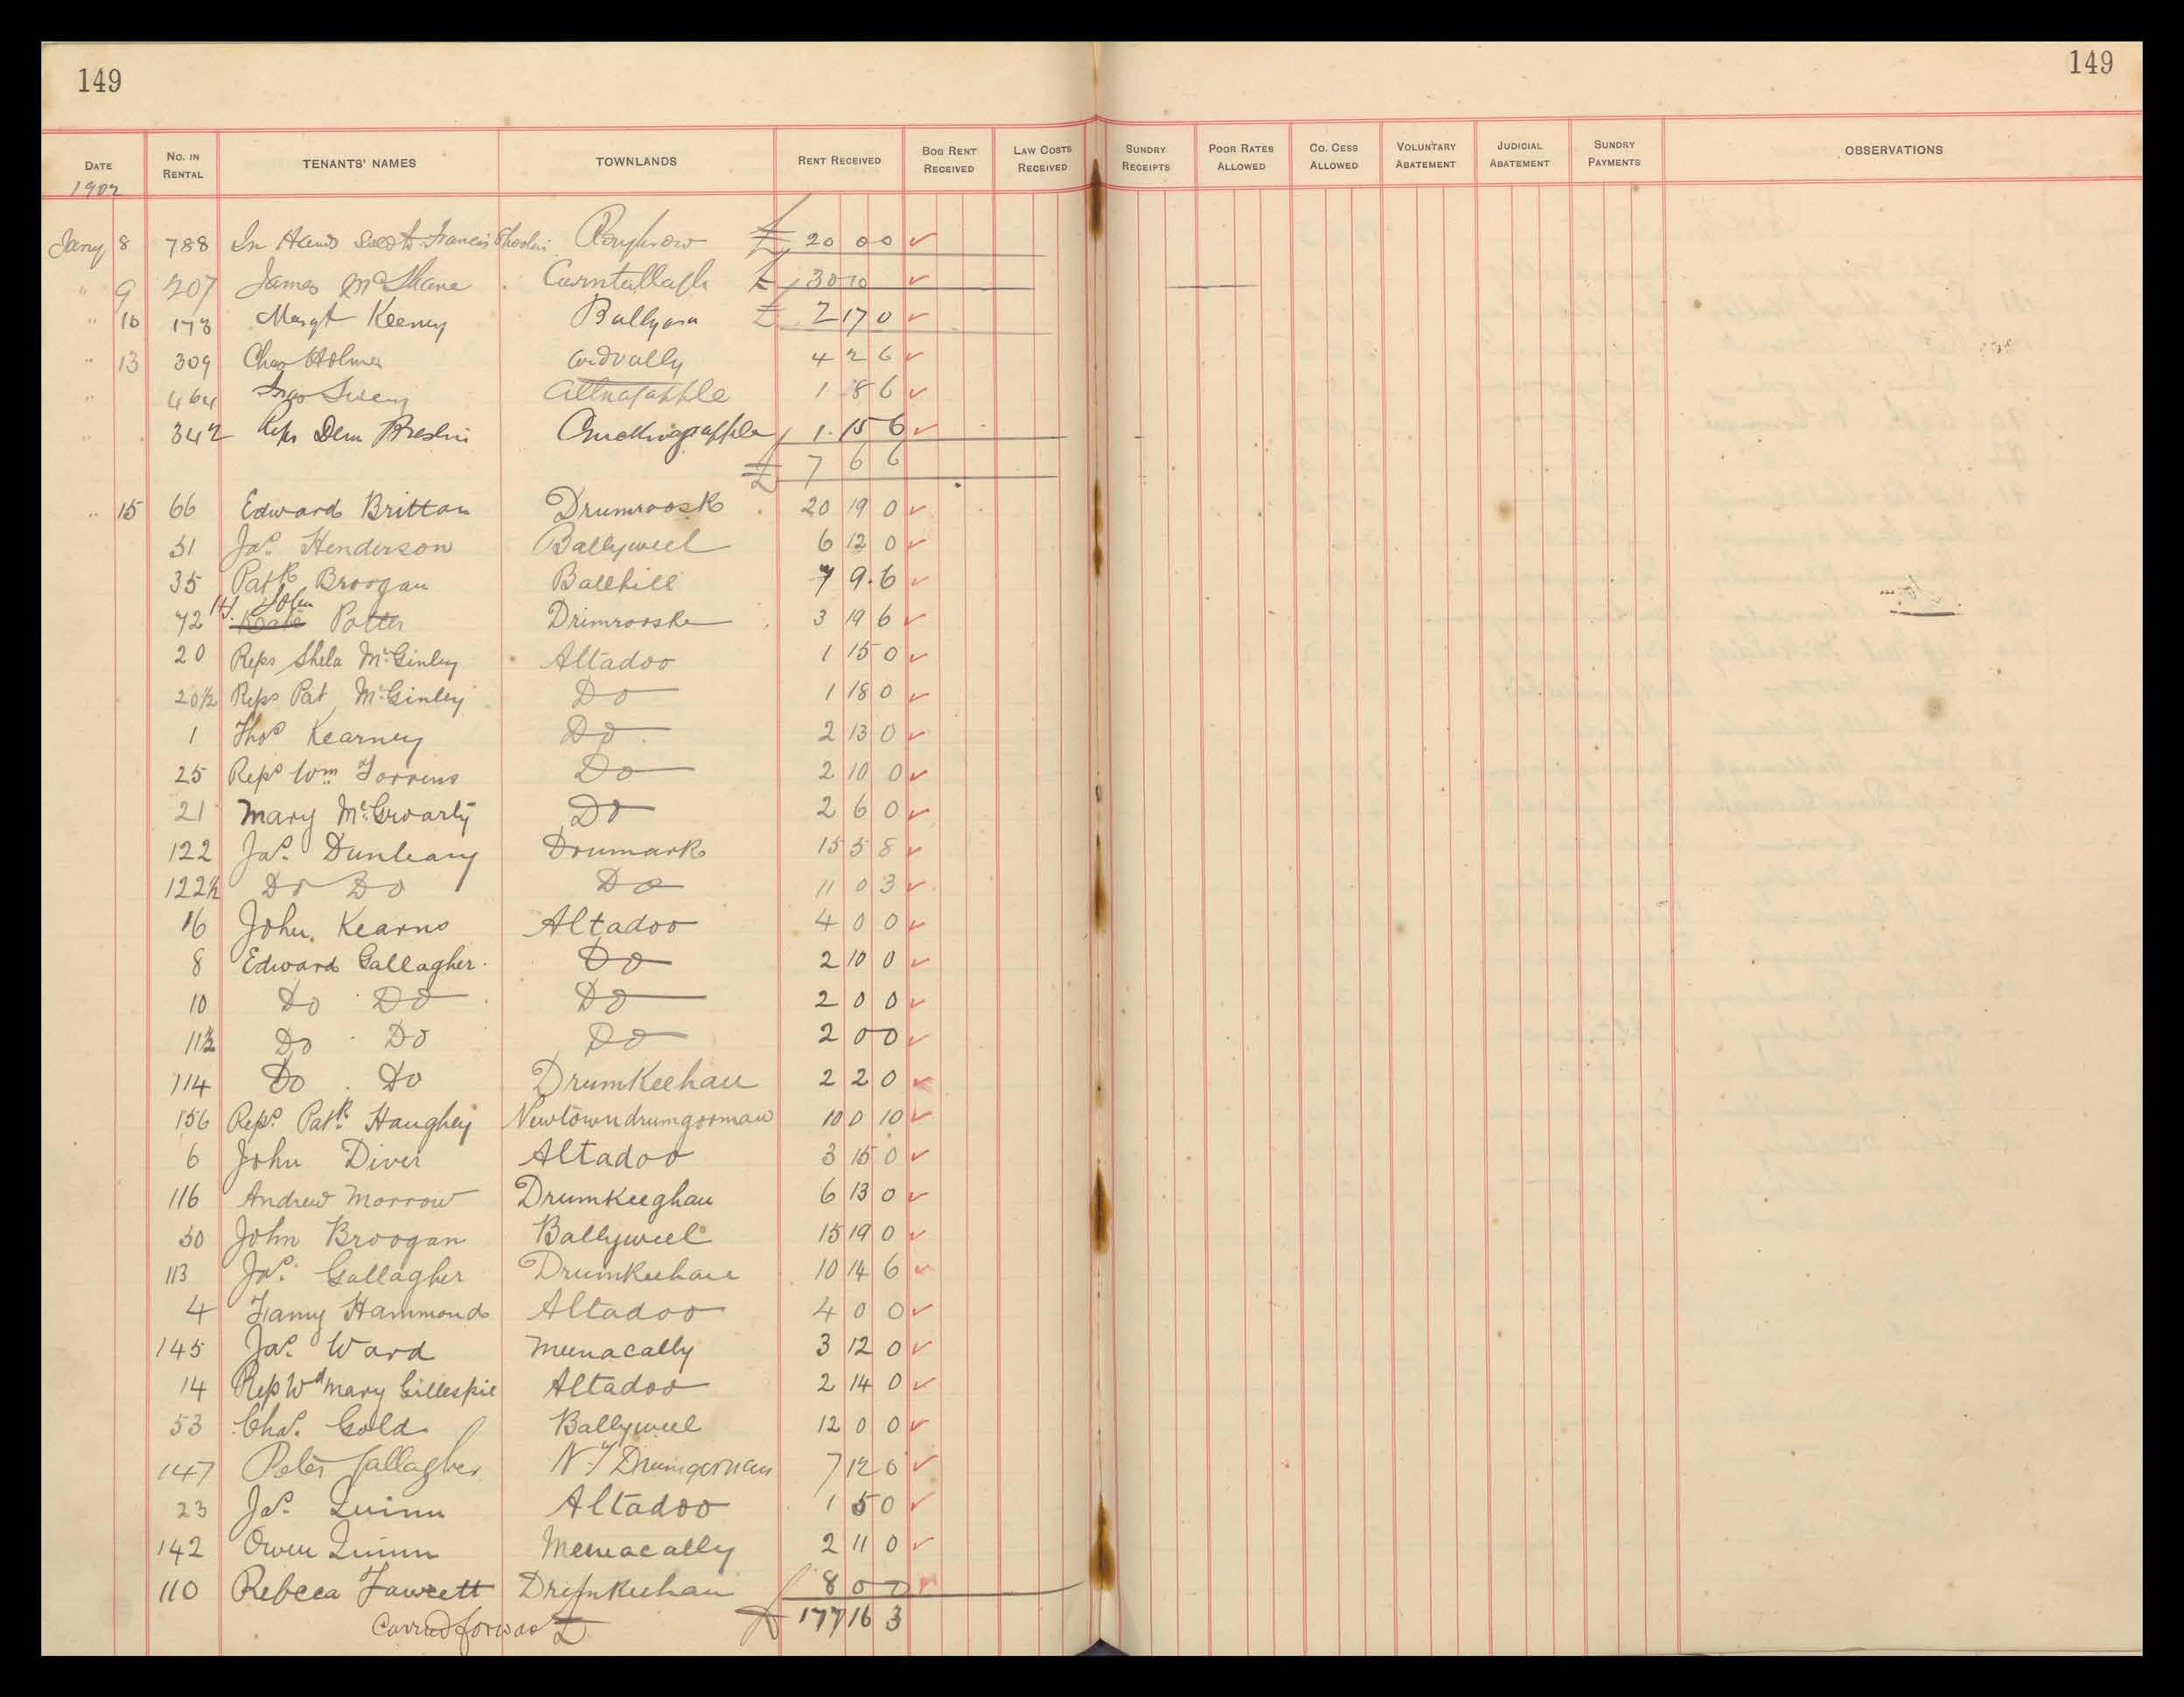 149
149
DATE No. IN RENTAL TENANTS' NAMES TOWNLANDS RENT RECEIVED BOG RENT RECEIVED LAW COSTS RECEIVED SUNDRY RECEIPTS POOR RATES ALLOWED CO. CESS ALLOWED VOLUNTARY ABATEMENT JUDICIAL ABATEMENT SUNDRY PAYMENTS OBSERVATIONS
1902
Jany 8 788 In Hands Francis £ 20 0 0
" 9 207 James McShane £ 3 0 0
" 10 173 Margt Keeney £ 2 17 0
" 13 309 Chas Holmes 4 2 6
" 464 1 8 6
" 342 Reps Breslin 1 15 6
£ 7 6 6
" 15 66 Edward Britton Drumroosk 20 19 0
51 Jas. Henderson Ballyweel 6 12 0
35 Patk Broogan Ballhill 7 9 6
72 John Potter Drimrooske 3 19 6
20 Reps Shela McGinley Altadoo 1 15 0
20½ Reps Pat McGinley Do 1 18 0
1 Thos Kearney Do 2 13 0
25 Reps Wm Torrens Do 2 10 0
21 Mary McGroarty Do 2 6 0
122 Jas. Dunleavy Drumark 15 5 8
122½ Do Do Do 11 0 3
16 John Kearns Altadoo 4 0 0
8 Edward Gallagher Do 2 10 0
10 Do Do Do 2 0 0
11½ Do Do Do 2 0 0
114 Do Do Drumkeehan 2 2 0
156 Reps. Patk. Haughey Newtowndrumgorman 10 0 10
6 John Diver Altadoo 3 15 0
116 Andrew Morrow Drumkeeghan 6 13 0
50 John Broogan Ballyweel 15 19 0
113 Jas. Gallagher Drumkeehan 10 14 6
4 Fanny Hammonds Altadoo 4 0 0
145 Jas. Ward Meenacally 3 12 0
14 Rep Wd Mary Gillespie Altadoo 2 14 0
53 Chas. Gold Ballyweel 12 0 0
147 Peter Gallagher N.T Drumgorman 7 12 0
23 Jas. Quinn Altadoo 1 5 0
142 Owen Quinn Meenacally 2 11 0
110 Rebeca Fawcett Drumkeehan 8 0 0
Carried forward £ £ 177 16 3